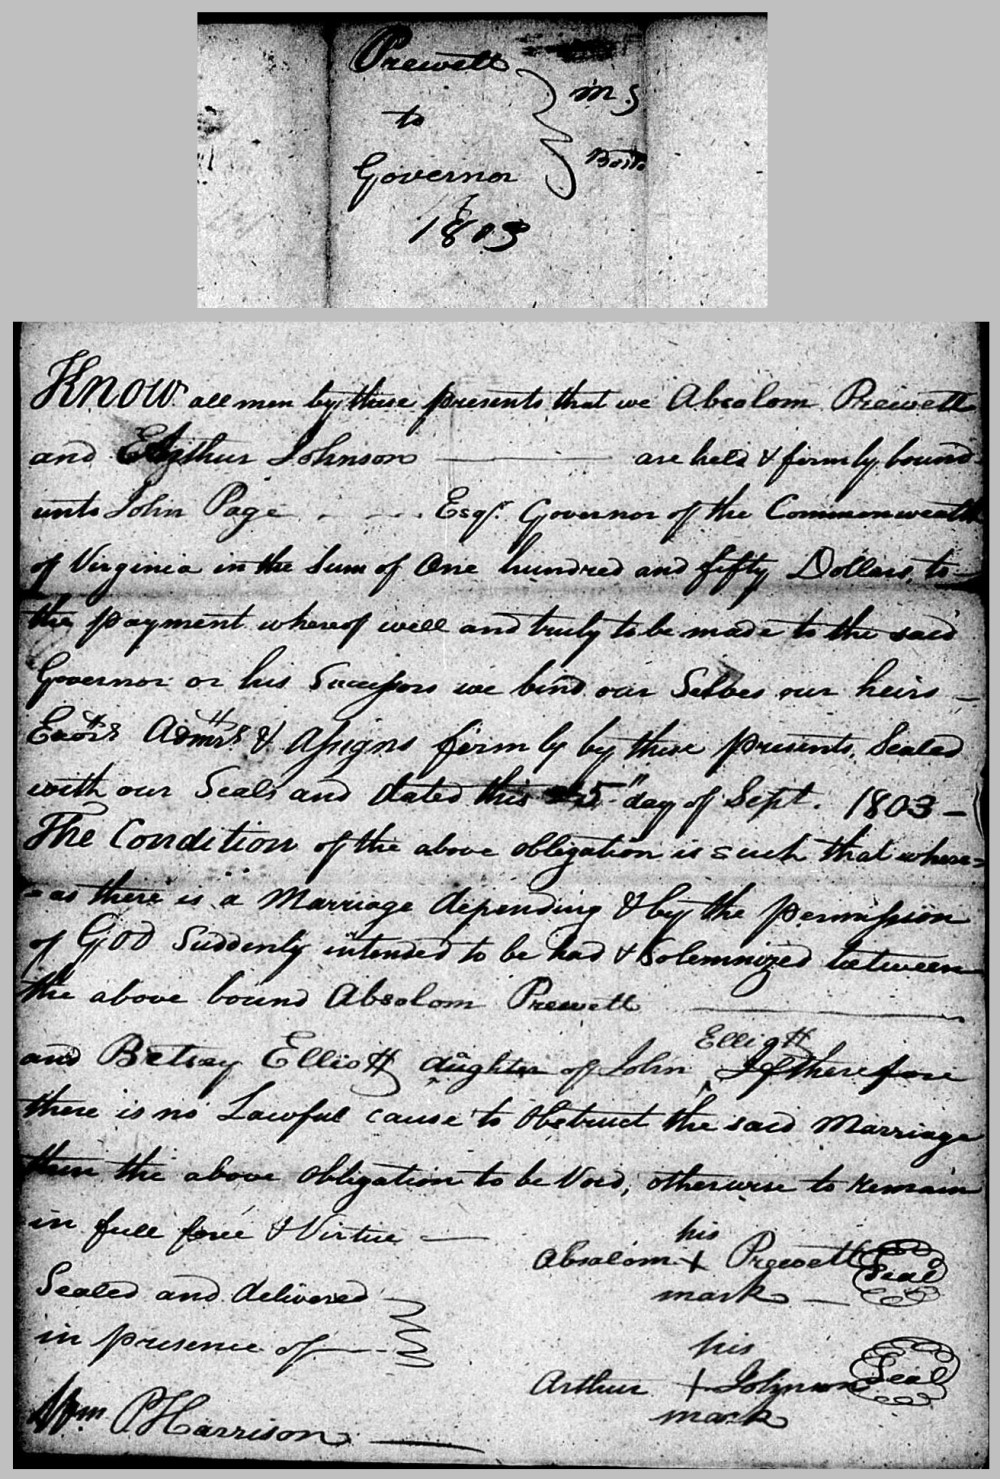 Prewett
to
Governor
} M. G
Bond
1803
Know all men by these presents that we Absolom Prewett
and Arthur Johnson are held & firmly bound
unto John Page Esqr. Governor of the Commonwealth
of Virginia in the Sum of One hundred and fifty Dollars, to
the payment whereof well and truly to be made to the said
Governor or his Successors we bind our Selves our heirs
Exors Admrs & Assigns firmly by these presents, Sealed
with our Seals and dated this 5" day of Sept. 1803 –
The Condition of the above obligation is such that where=
=as there is a Marriage depending & by the permission
of God Suddenly intended to be had & Solemnized between
the above bound Absolom Prewett
and Betsey Elliott daughter of John Elliott If therefore
there is no Lawful cause to obstruct the said Marriage
then the above obligation to be Void, otherwise to remain
in full force & Virtue –
Sealed and delivered
in presence of
Wm. P Harrison
his
Absalom + Prewett Seal
mark
his
Arthur + Johnson Seal
mark